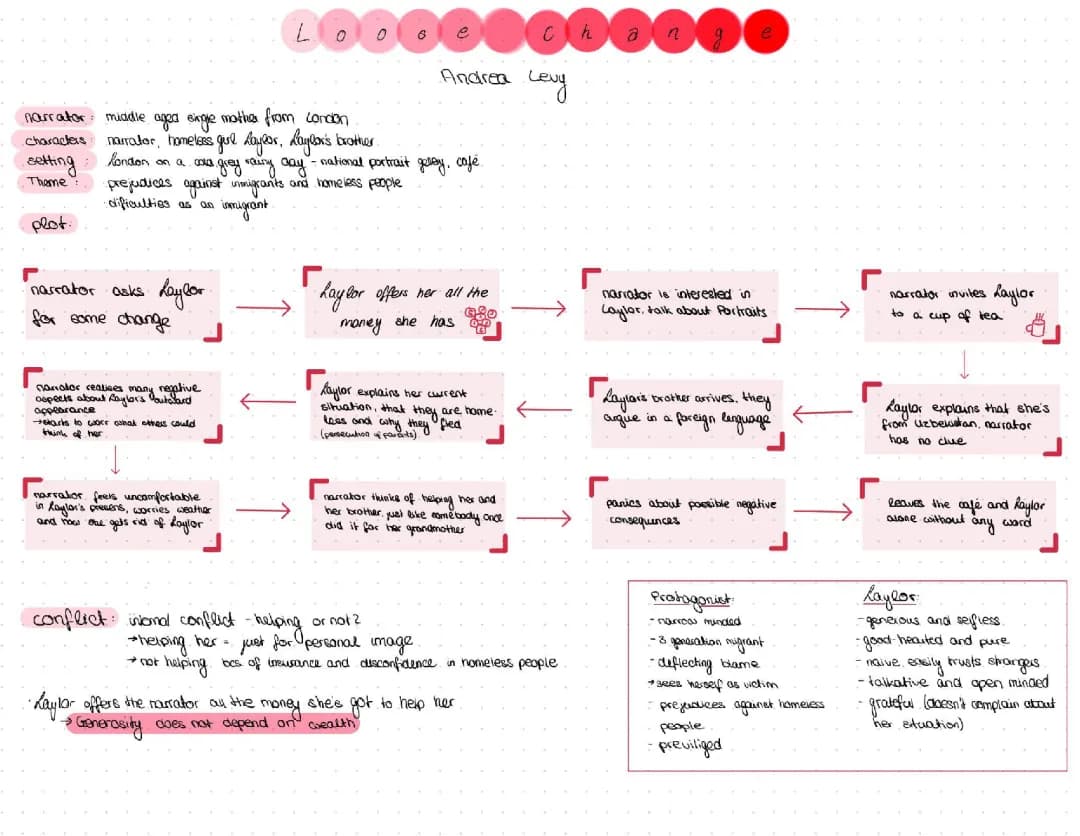 Loose change
Andrea Levy
narrator: middle aged single mother from London
characters: narrator, homeless girl Laylor, Laylor's brother
setting: London on a cold grey rainy day - national portrait gallery, café
Theme: prejudices against immigrants and homeless people
difficulties as an immigrant
plot:
narrator asks Laylor
for some change
Laylor offers her all the
money she has
narrator is interested in
Laylor, talk about Portraits
narrator invites Laylor
to a cup of tea
Laylor explains that she's
from Uzbekistan, narrator
has no clue
Laylor's brother arrives, they
argue in a foreign language
Laylor explains her current
situation, that they are home-
less and why they fled
(persecution of parents)
narrator realises many negative
aspects about Laylor's outward
appearance
→ starts to what others could
think of her
narrator feels uncomfortable
in Laylor's presens, worries weather
and how she gets rid of Laylor
narrator thinks of helping her and
her brother, just like somebody once
did it for her grandmother
panics about possible negative
consequences
leaves the café and Laylor
alone without any word
conflict: internal conflict - helping or not?
→ helping her = just for personal image
→ not helping bcs of and disconfidence in homeless people
· Laylor offers the narrator all the money she's got to help her
→ Generosity does not depend on wealth
Protagonist:
- narrow minded
- 3 generation migrant
- deflecting blame
→ sees herself as victim
- prejudices against homeless
people
- previliged
Laylor:
- generous and selfless
- good-hearted and pure
- naive, easily trusts strangers
- talkative and open minded
- grateful (doesn't complain about
her situation)